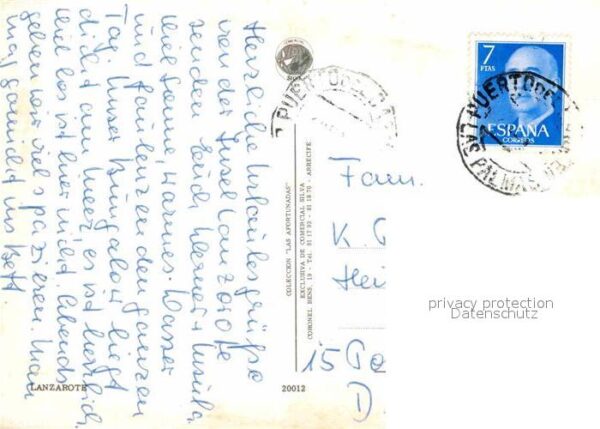 Herzliche Urlaubsgrüße
von der Insel Lanzarote
senden Euch Werner + Ursula
Viel Sonne, warmes Wasser
und faulenzen den ganzen
Tag. Unser Bungalow liegt
dicht am Meer, es ist herrlich.
Viel los ist hier nicht. Abends
gehen wir viel spazieren. Man
mal ins Bett
LANZAROTE
20012
COLECCION "LAS AFORTUNADAS"
EXCLUSIVA DE COMERCIAL SILVA
CORONEL BENS, 19 - Tel. 81 17 92 - 81 18 70 - ARRECIFE
7
PTAS
ESPAÑA
CORREOS
PUERTO DE
PUERTO DE
LAS PALMAS
Fam.
K.
Hei
15
D.
privacy protection
Datenschutz